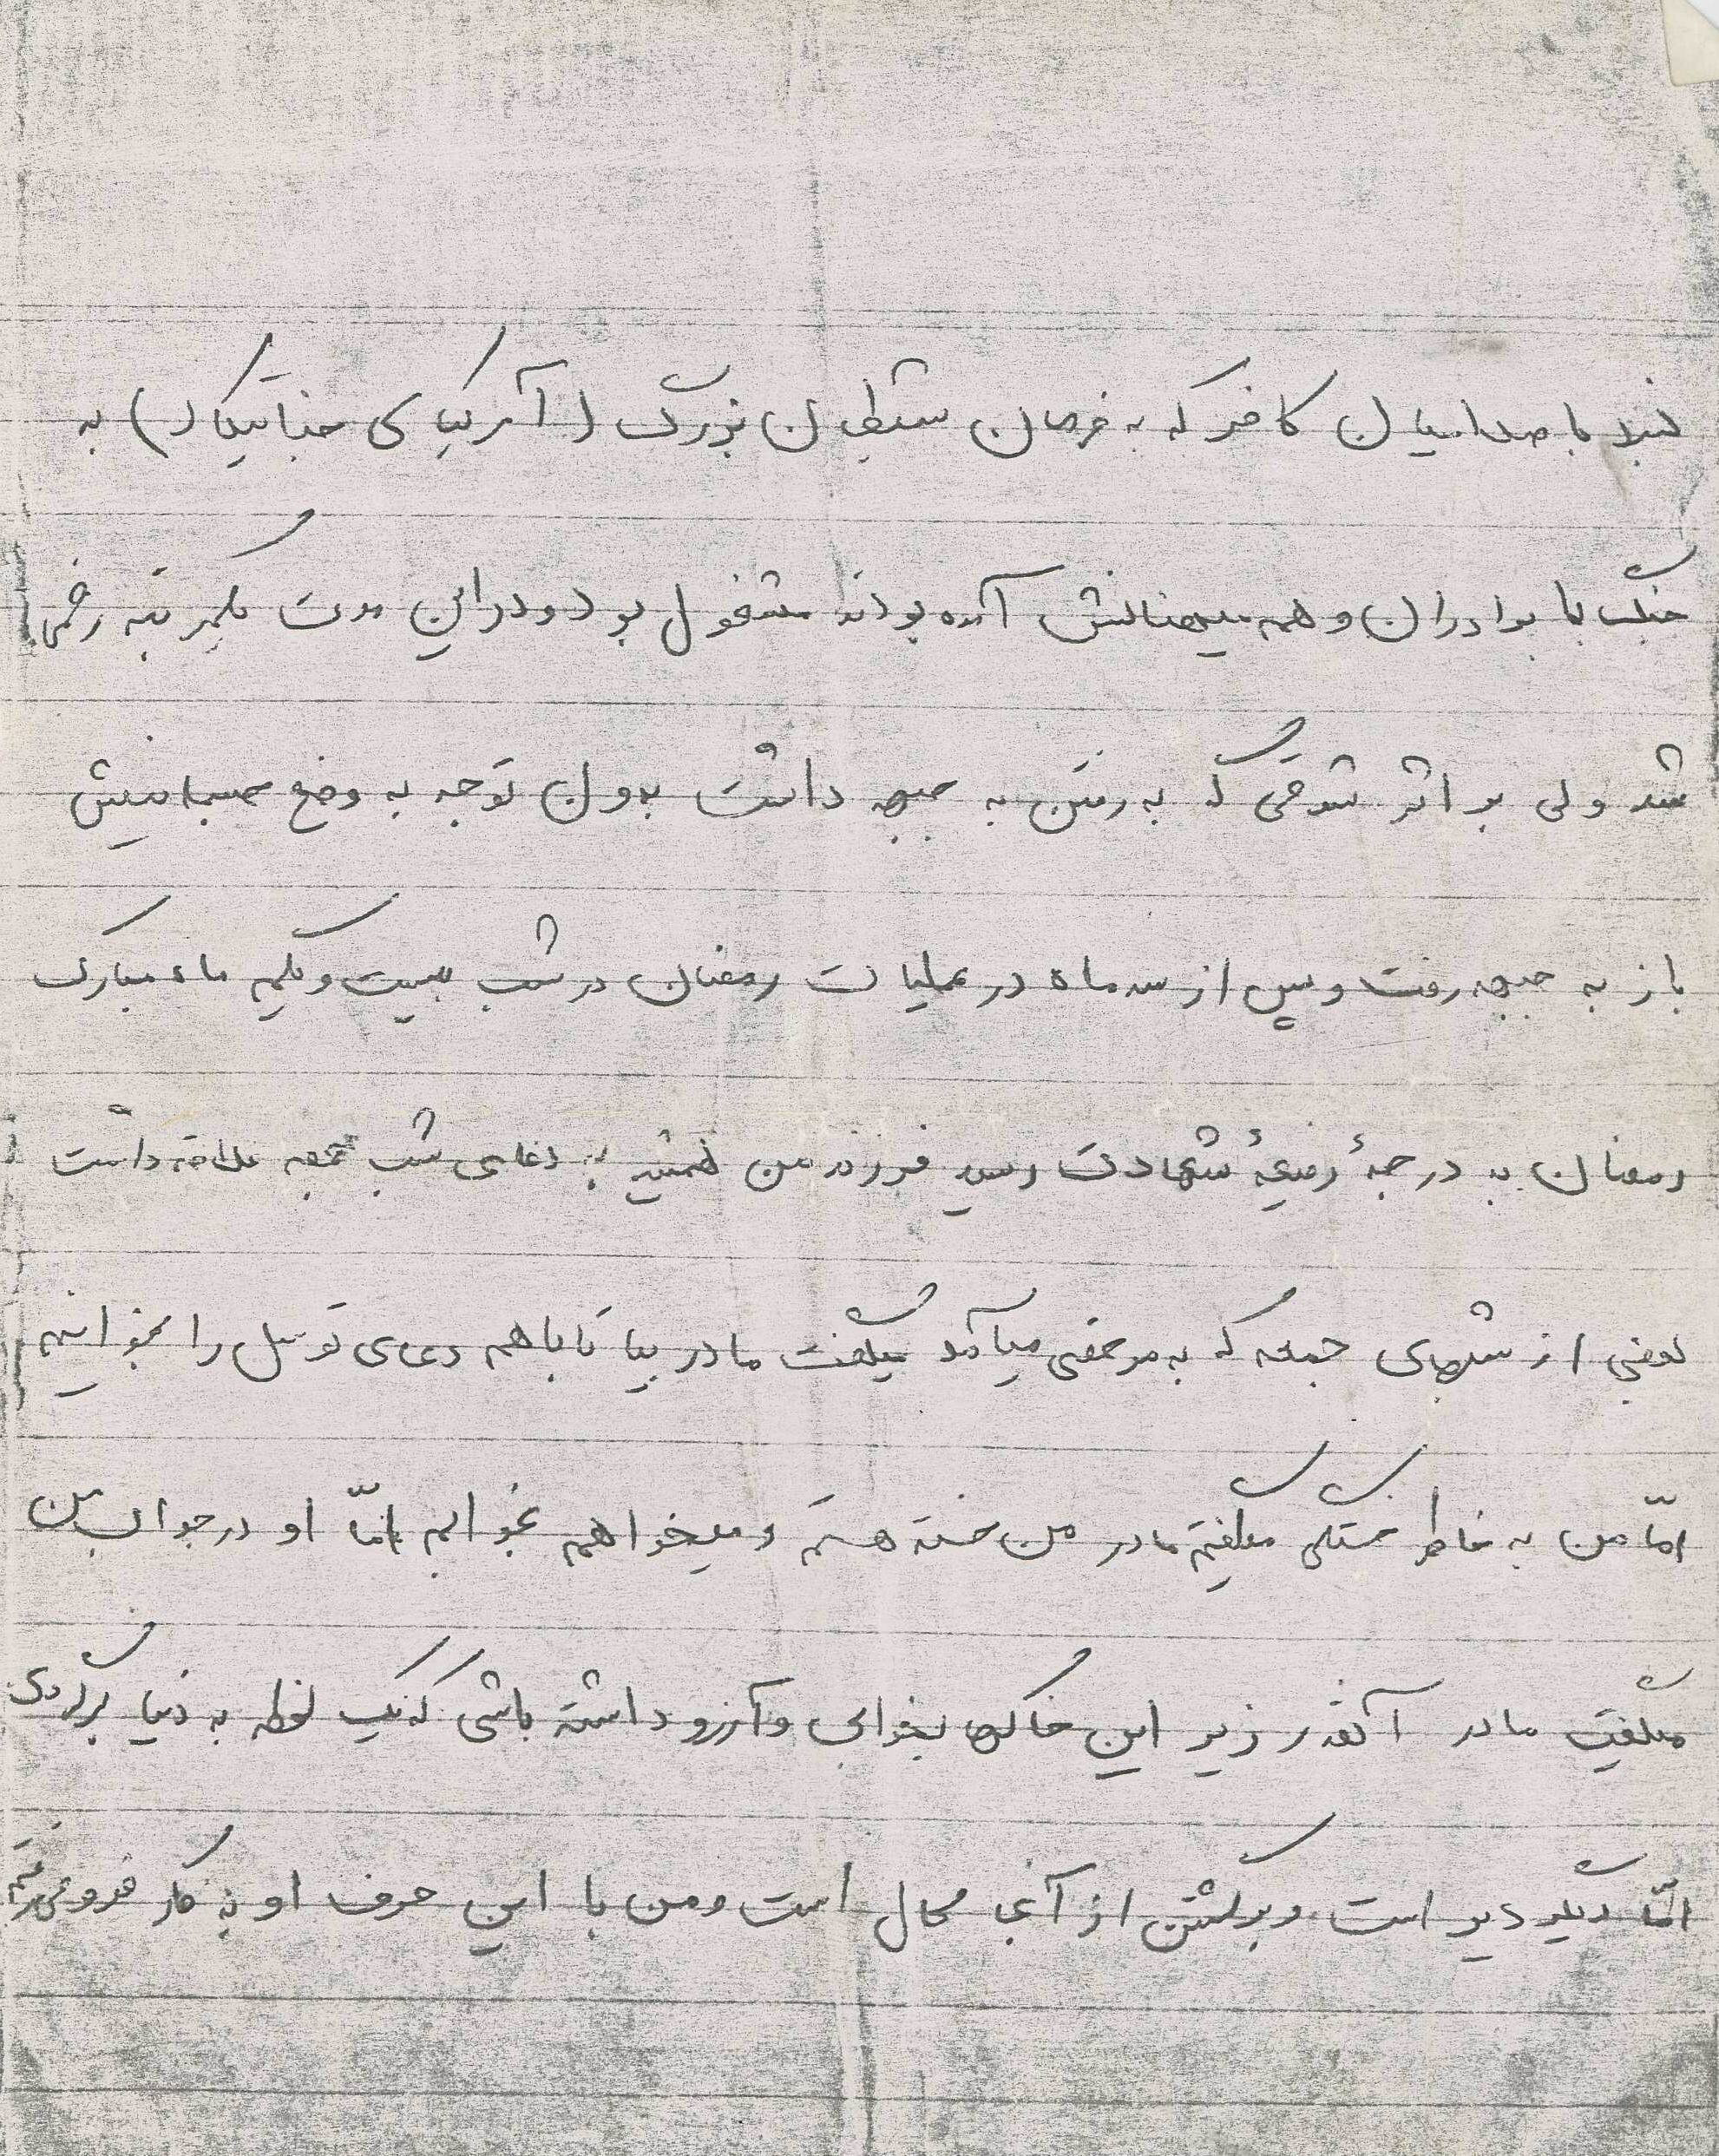 نبرد با صدامیان کافر که به فرمان شیطان بزرگ (آمریکای جنایتکار) به
جنگ با برادران و هم میهنانش آمده بودند مشغول بود و در این مدت یکمرتبه زخمی
شد ولی بر اثر شوقی که به رفتن به جبهه داشت بدون توجه به وضع جسمانیش
باز به جبهه رفت و پس از سه ماه در عملیات رمضان در شب بیست و یکم ماه مبارک
رمضان به درجهٔ رفیعهٔ شهادت رسید فرزند من همیشه به دعای شب جمعه علاقه داشت
بعضی از شبهای جمعه که به مرخصی میآمد میگفت مادر بیا تا با هم دعای توسل را بخوانیم
امّا من به خاطر خستگی میگفتم مادر من خسته هستم و میخواهم بخوابم امّا او در جواب من
میگفت مادر آنقدر زیر این خاکها بخوابی و آرزو داشته باشی که یک لحظه به دنیا برگردی
امّا دیگر دیر است و برگشتن از آنجا محال است و من با این حرف او به فکر فرو میرفتم